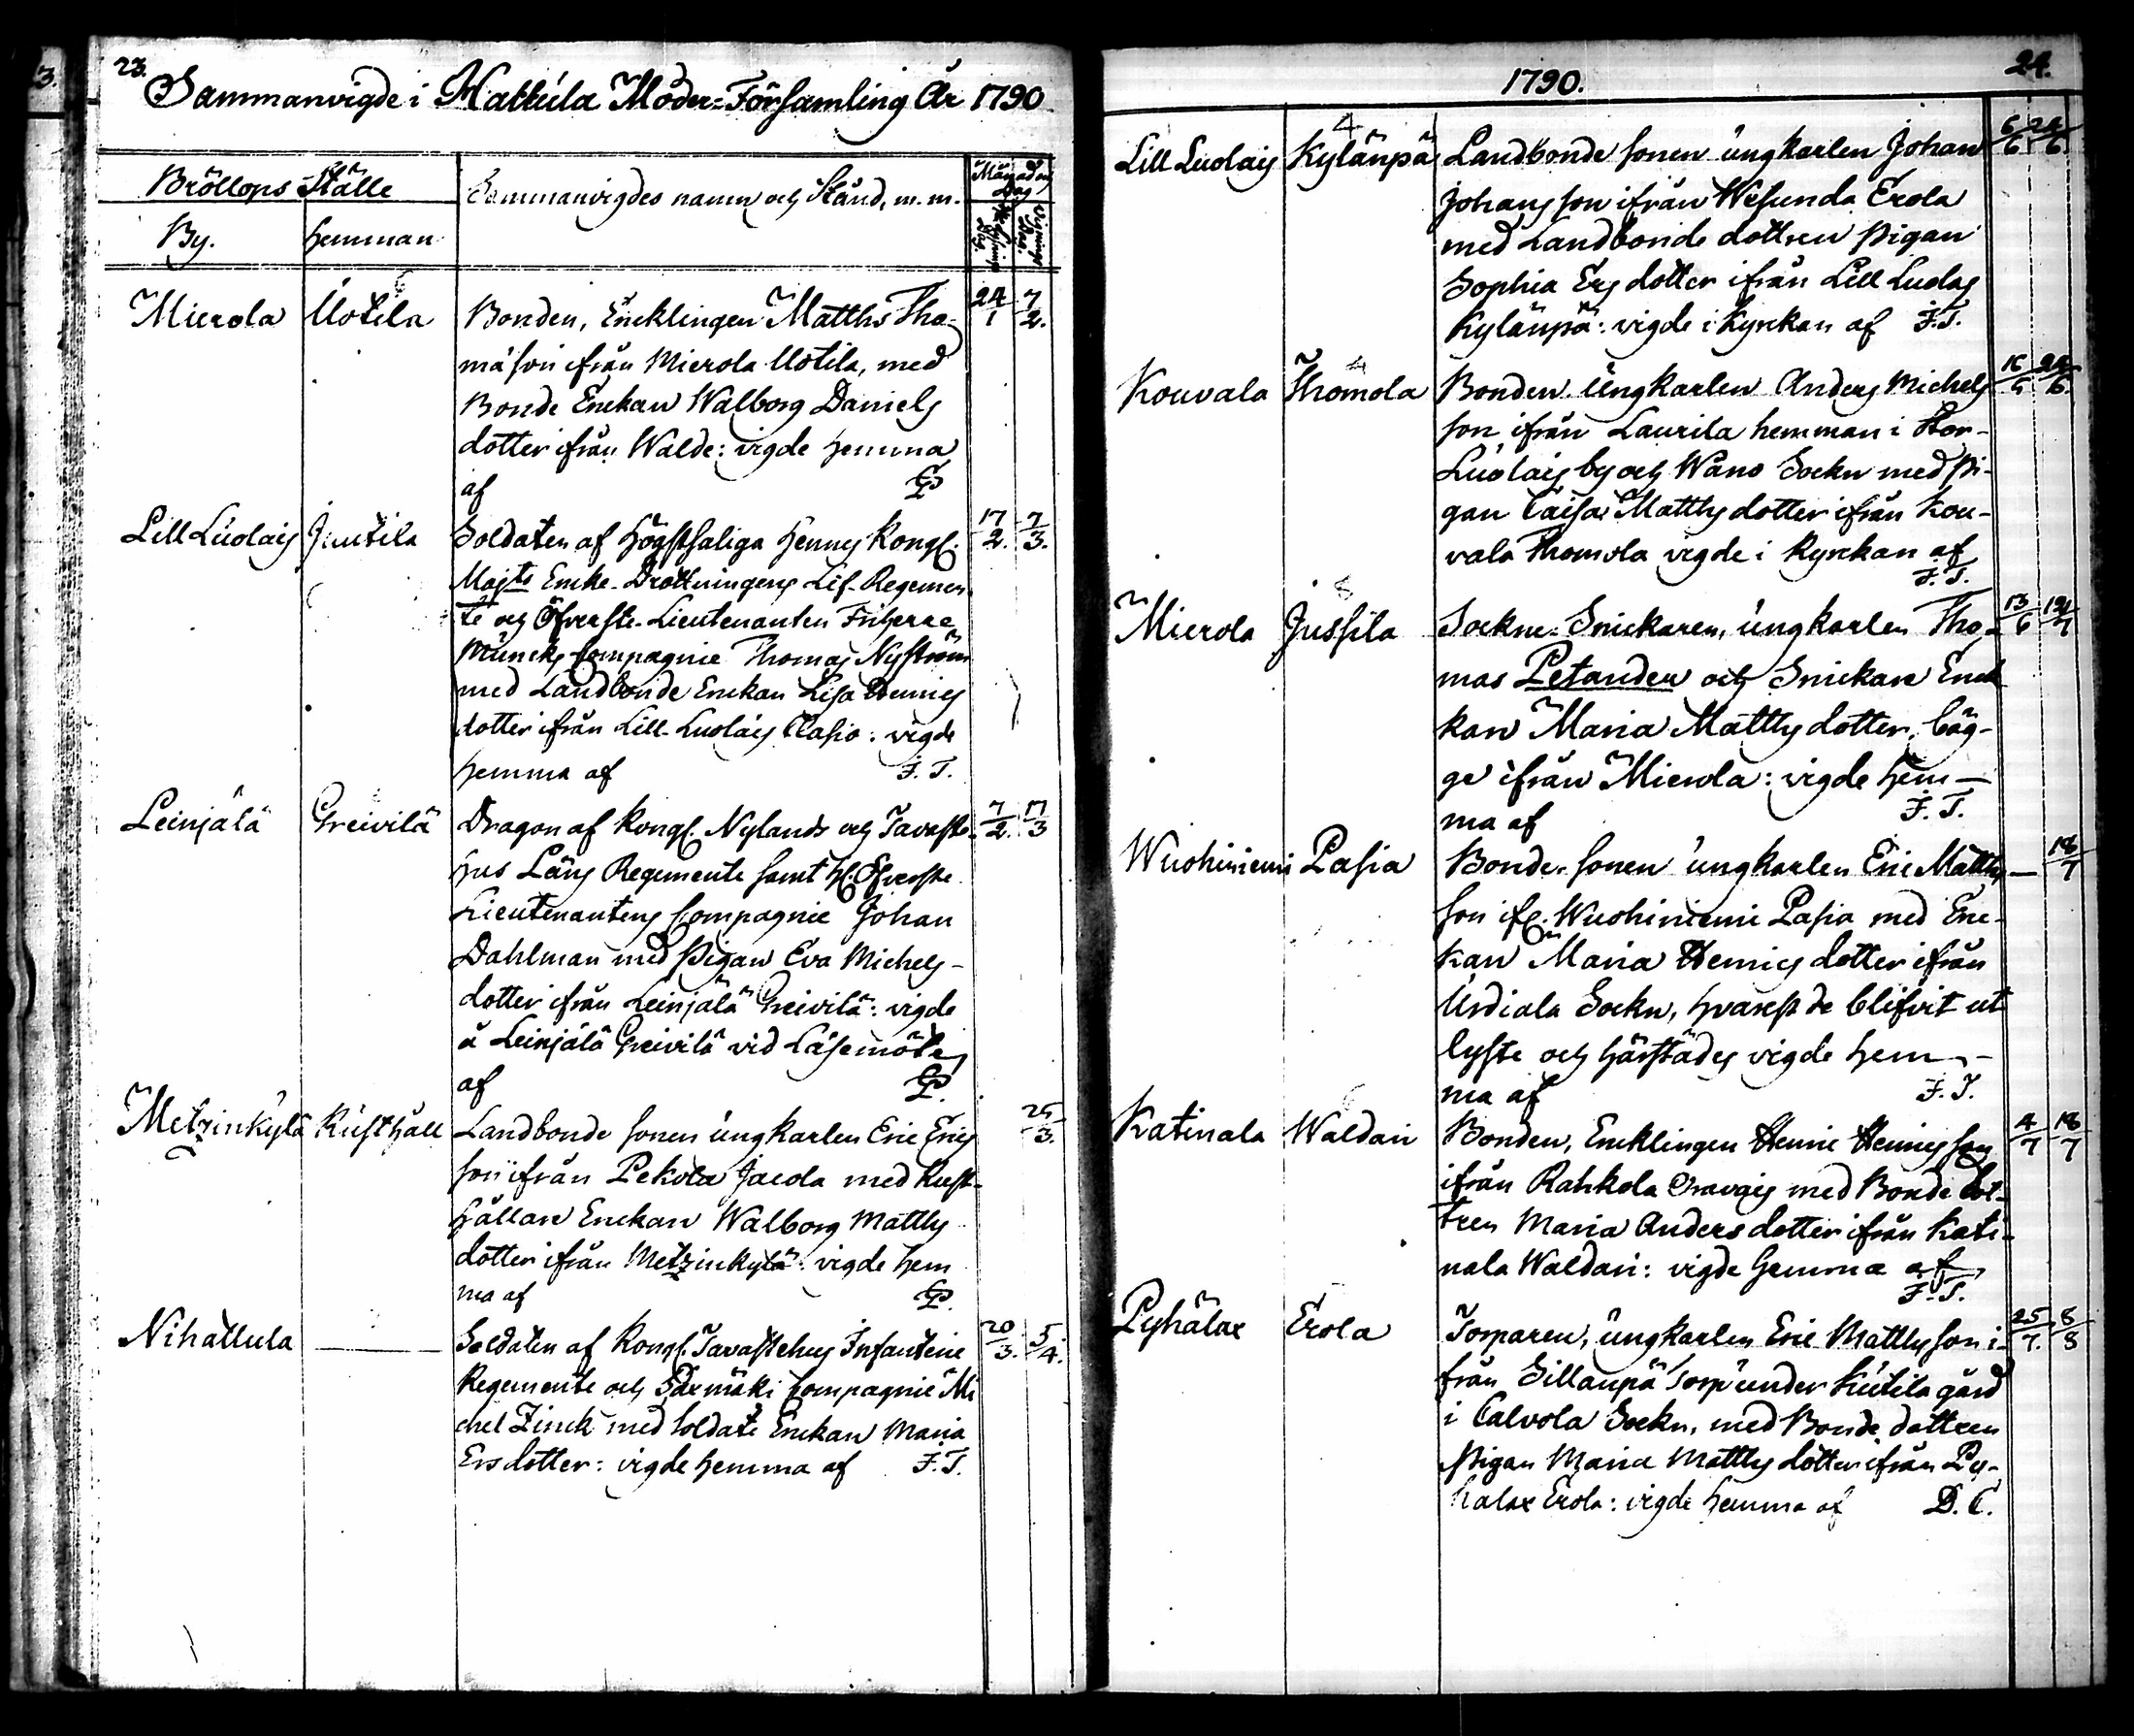 3.
23.
Sammanvigde i Hattula Moder-Församling År 1790
Bröllops Ställe
Sammanvigdes namn och Stånd, m. m.
Månad och Dag
By.
Hemman
Mierola Uotila Bonden, Encklingen Matths Tho- 24/1 7/2.
mäson ifrån Mierola Uotila, med
Bonde Enckan Walborg Daniels
dotter ifrån Walde: vigde hemma
af
Lill Luolais Juutila Soldaten af Högstsaliga Hennes Kongl. 17/2. 7/3.
Majts Encke-Drottningens Lif-Regemen
te och Öfverste-Lieutenanten Friherre
Muncks Compagnie Thomas Nyström
med Landbonde Enckan Lisa Henrics
dotter ifrån Lill-Luolais Clasio: vigde
hemma af F. T.
Leinjälä Greivilä Dragon af Kongl. Nylands och Tavaste- 7/2. 17/3
hus Läns Regemente samt H. Öfverste
Lieutenantens Compagnie Johan
Dahlman med Pigan Eva Michels-
dotter ifrån Leinjälä Greivilä: vigde
å Leinjälä Greivilä vid Läsemöte
af
Metzinkylä Rusthåll Landbonde sonen ungkarlen Eric Erics 25/3.
son ifrån Pekola Jacola med Rust-
hållare Enckan Walborg Matths
dotter ifrån Metzinkylä: vigde hem
ma af
Nihattula Soldaten af Kongl. Tavastehus Infanterie 20/3. 5/4.
Regemente och Saxmäki Compagnie Mi
chel Zinck med Soldate Enckan Maria
Ersdotter: vigde hemma af F. T.
1790.
24.
4
Lill Luolais Kylänpä Landbonde sonen ungkarlen Johan 6/6 24/6.
Johans son ifrån Wesunda Erola
med Landbonde dottren Pigan
Sophia Ers dotter ifrån Lill Luolas
Kylänpä: vigde i Kyrkan af F. T.
4
Kouvala Thomola Bonden Ungkarlen Anders Michels 24/6.
son ifrån Laurila hemman i Stor-
Luolais by och Wano Sockn med Pi-
gan Caisa Matths dotter ifrån Kou-
vala Thomola vigde i Kyrkan af
F. T.
Mierola Jussila Sockne-Snickaren, ungkarlen Tho- 13/6
mas Petander och Snickare Enck
kan Maria Matths dotter, bäg-
ge ifrån Mierola: vigde hem-
ma af F. T.
Wuohiniemi Pasia Bonde-sonen ungkarlen Eric Matths — 18/7
son ifr. Wuohiniemi Pasia med Enc-
kan Maria Henrics dotter ifrån
Urdiala Sockn, hvarest de blifvit ut
lyste och härstädes vigde hem-
ma af F. T.
Katinala Waldari Bonden, Encklingen Henric Henrics son 4/7 18/7
ifrån Rahkola Oravais med Bonde dot-
tren Maria Anders dotter ifrån Kati-
nala Waldari: vigde hemma af
F. T.
Pyhälax Erola Torparen, ungkarlen Eric Matths son i- 25/7. 8/8
från Sillanpä Torp under Kutila gård
i Calvola Sockn, med Bonde dottren
Pigan Maria Matths dotter ifrån Py-
hälax Erola: vigde hemma af D. C.